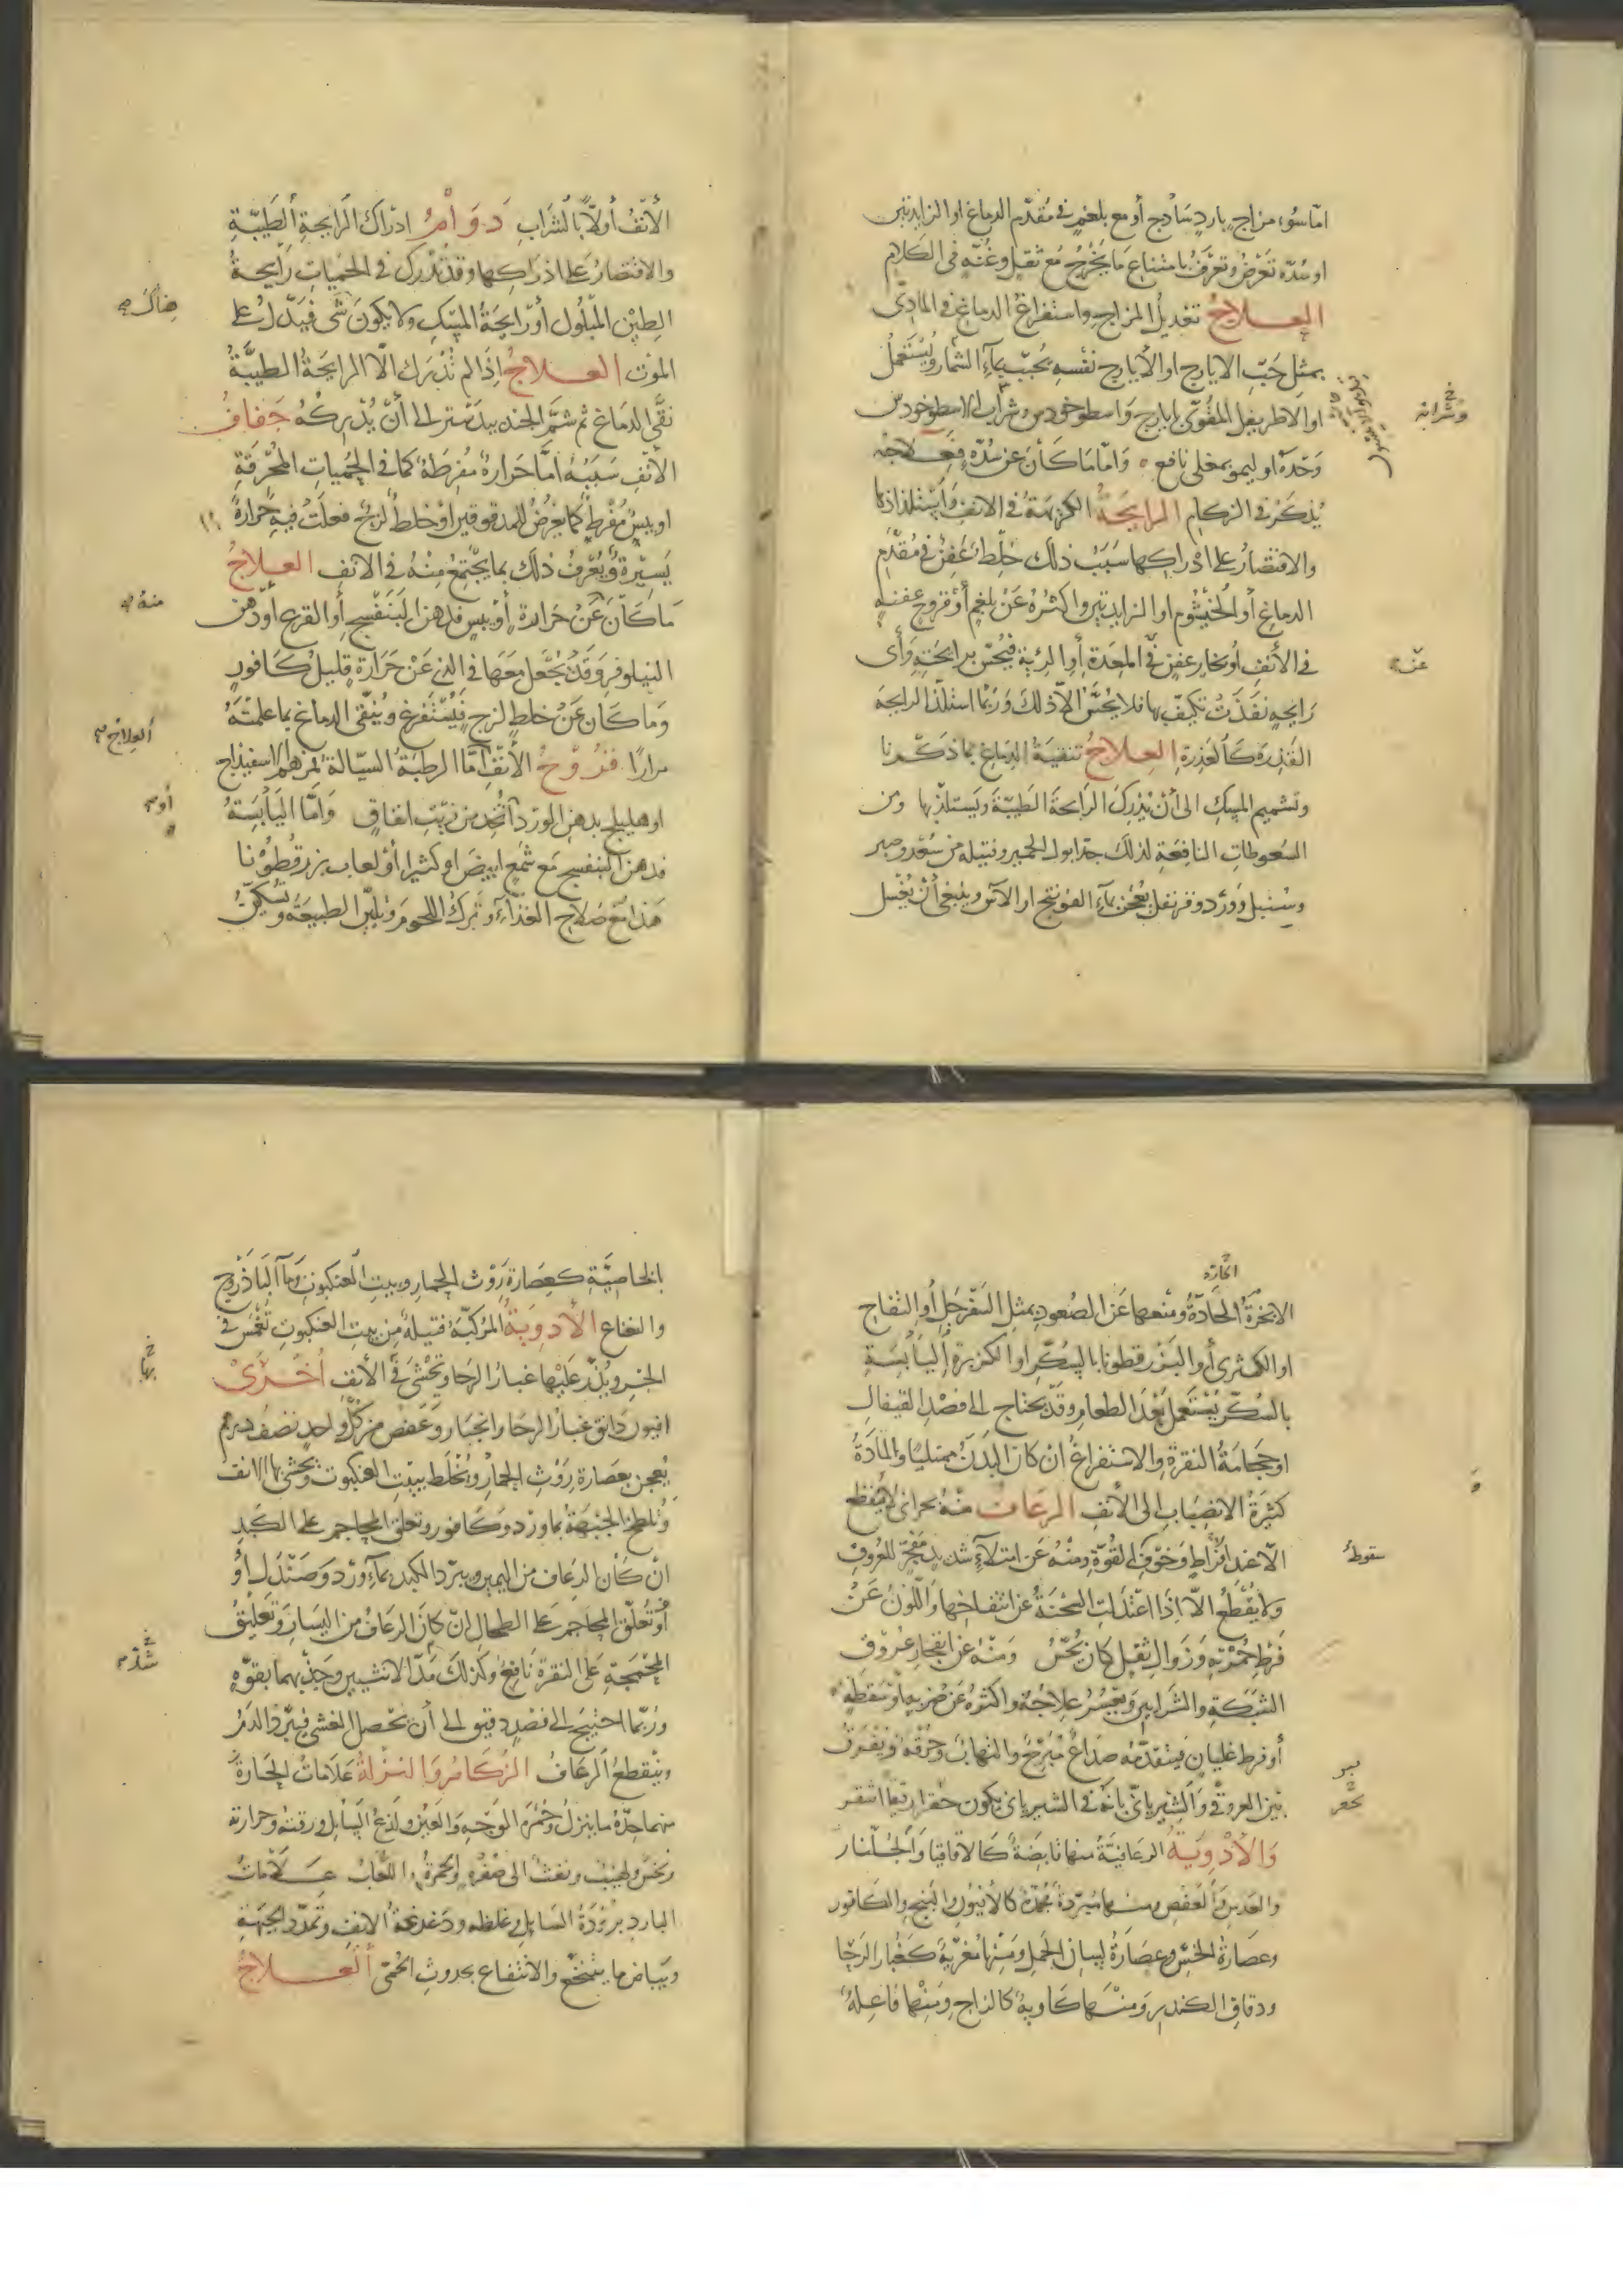 اماسوء مزاج بارد ساذج أومع بلغم في مقدم الدماغ اوالزايدتين
اوسده تعرض وتعرف بامتناع مايخرج مع ثقل وغنه في الكلام
العلاج تعديل المزاج واستفراغ الدماغ في المادى
بمثل حب الايارج اوالأيارج نفسه بحبب بماء الشمار ويستعمل
اوالاطريفل المقوى بايارج واسطوخودس وشراب الاسطوخودس
وشرابه
وحده اوليمو بمغلى نافع واماماكان عن سده فعلاجه
يذكر في الزكام الرايحة الكريهة في الانف واستلذاذها
والاقتصار على ادراكها سبب ذلك خلط عفن في مقدم
الدماغ أوالخيشوم اوالزايدتين واكثره عن بلغم أوقروح عفنه
في الأنف أوبخار عفن في المعدة أوالرئة فيحس برايحته وأى
عنه
رايحه نفذت تكيف بها فلايحس الاذلك وربما استلذ الرايحه
القذره كالعذرة العلاج تنقية الدماغ بماذكرنا
وتشميم المسك الى أن يدرك الرايحة الطيبة ويستلذبها ومن
السعوطات النافعة لذلك جدابول الحمير وفتيله من سعد وصبر
وسنبل وورد وقرنفل يعجن بماء الفوتنج اوالآس وينبغي أن يغسل
الأنف أولا بالشراب دوامر ادراك الرايحة الطيبة
والاقتصار على ادراكها وقدتدرك في الحميات رايحة
الطين المبلول أورايحة المسك ولايكون شى فيدل على
هناك
الموت العلاج اذالم تدرك الاالرايحة الطيبة
نقى الدماغ ثم شم الجندبيدستر الى أن يدركه جفاف
الأنف سببه اماحرارة مفرطة كمافي الحميات المحرقة
اويبس مفرط كمايعرض للمدقوقين اوخلط لزج فعلت فيه حرارة
يسيرة ويعرف ذلك بمايجتمع منه في الانف العلاج
ماكان عن حرارة أويبس فدهن البنفسج أوالقرع أودهن
منه
النيلوفر وقديجعل معها في الذى عن حرارة قليل كافور
وماكان عن خلط لزج فيستفرغ وينقى الدماغ بماعلمته
العلاج
مرارا قروح الأنف اماالرطبة السيالة بمرهم الاسفيذاج
اوهليلج بدهن الورد اتخذ من زيت انفاق وأمااليابسة
أو
فدهن البنفسج مع شمع ابيض اوكثيرا أولعاب بزرقطونا
هذا مع صلاح الغذاء وترك اللحوم وتليين الطبيعة وتسكين
الحارة
الابخرة الحادة ومنعها عن الصعود بمثل السفرجل أوالتفاح
اوالكمثرى أوالبزرقطونا بالسكر اوالكزبرة اليابسة
بالسكر يستعمل بعد الطعام وقديحتاج الى فصد القيفال
اوحجامة النقرة والاستفراغ ان كان البدن ممتليا والمادة
كثيرة الانصباب الى الأنف الرعاف منه بحرانى لايقطع
الاعند افراط وخوف القوة ومنه عن امتلاء شديد مفجر للعروق
سقوط
ولايقطع الااذا اعتدلت السحنة عن انتفاخها واللون عن
فرط حمرته وزوال ثقيل كان يحس ومنه عن انفجار عروق
الشبكة والشرايين ويعسر علاجه واكثره عن ضربه اوسقطه
أوفرط غليان فيتقدمه صداع مبرح والتهاب وحرقه ويفرق
بين العروقي والشرياني بانه في الشرياني يكون حفرا رقيقا اشقر
والأدوية الرعافية منها قابضة كالاقاقيا والجلنار
والعدس والعفص ومنها مبردة مجمدة كالأفيون والبنج والكافور
وعصارة الخس وعصارة لسان الحمل ومنها مغرية كغبار الرحا
ودقاق الكندر ومنها كاوية كالزاج ومنها فاعلة
بالخاصية كعصارة روث الحمار وبيت العنكبوت وماء الباذروج
والنعناع الأدوية المركبة فتيلة من بيت العنكبوت تغمس في
الحبر ويذر عليها غبار الرحا وتحشى في الأنف اخرى
بها
افيون دانق غبار الرحا وانجبار وعفص من كل واحد نصف درهم
يعجن بعصارة روث الحمار ويخلط ببيت العنكبوت ويحشى بها الانف
وتلطخ الجبهة بماورد وكافور وتعلق المحاجم على الكبد
ان كان الرعاف من اليمين ويبرد الكبد بماء ورد وصندل او
أوتعلق المحاجم على الطحال ان كان الرعاف من اليسار وتعليق
المحجمة على النقرة نافع وكذلك مد الانثيين وجذبهما بقوه
شد
وربما احتيج الى فصد دقيق الى أن يحصل الغشى فيبرد الدم
وينقطع الرعاف الزكام والنزلة علامات الحارة
منهما حدة ماينزل وحمرة الوجه والعين ولذع السايل ورقته وحرارته
ونخس ولهيب ونفث الى صفره أوحمرة اللعاب علامات
البارد برودة السايل وغلظه ودغدغة الانف وتمدد الجبهة
وبياض مايتنخع والانتفاع بحدوث الحمى العلاج